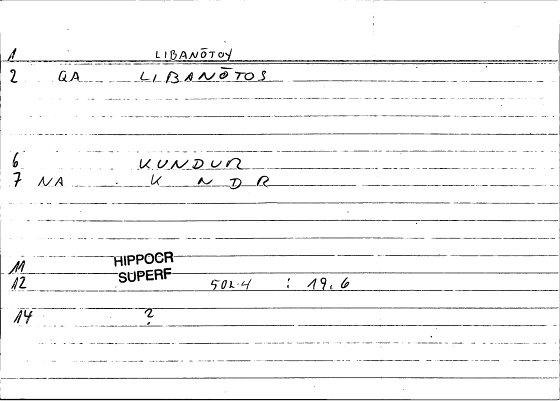 1 LIBANŌTOY
2 QA LIBANŌTOS
6 KUNDUR
7 NA K NDR
11 HIPPOCR
SUPERF
12 502.4 : 19.6
14 ?